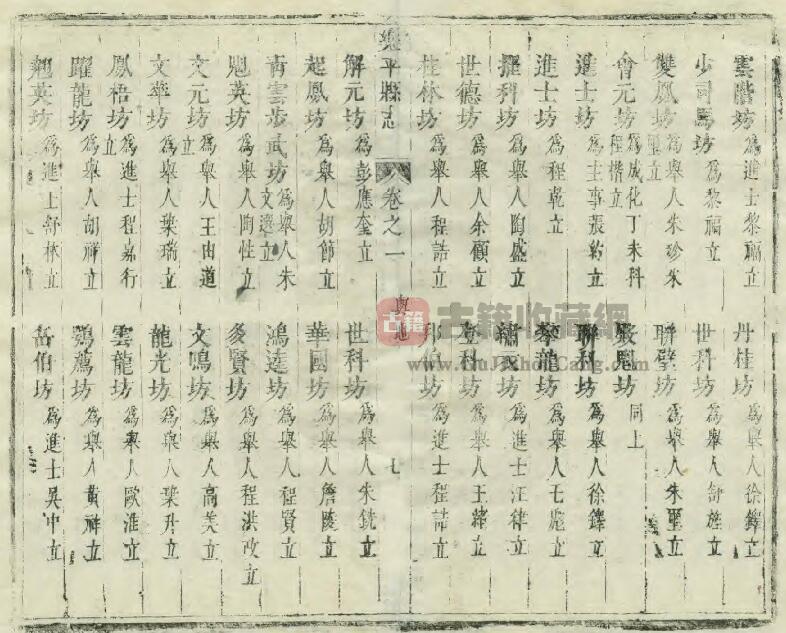 雲階坊 爲進士黎福立 丹桂坊 爲舉人徐鐸立
少司馬坊 爲黎福立 世科坊 爲舉人舒旌立
雙鳳坊 爲舉人朱珍朱璽立 聯璧坊 爲舉人朱璽立
會元坊 爲成化丁未科程楷立 魁坊 同上
進士坊 爲主事張 立 聯科坊 爲舉人徐鐸立
進士坊 爲程乾立 攀龍坊 爲舉人王 立
擢科坊 爲舉人陶盛立 繡衣坊 爲進士汪律立
世德坊 爲舉人余顧立 登科坊 爲舉人王 立
桂林坊 爲舉人程誥立 邦伯坊 爲進士程誥立
樂平縣志 卷之一 七
解元坊 爲彭應奎立 世科坊 爲舉人朱銑立
起鳳坊 爲舉人胡節立 華國坊 爲舉人詹陵立
青雲步武坊 爲舉人朱文選立 鴻逵坊 爲舉人程賢立
魁英坊 爲舉人陶性立 賢坊 爲舉人程洪改立
文元坊 爲舉人王由道立 文鳴坊 爲舉人高美立
文華坊 爲舉人葉瑞立 龍光坊 爲舉人葉升立
鳳梧坊 爲進士程嘉行立 雲龍坊 爲舉人歐淮立
躍龍坊 爲舉人胡祥立 鶚薦坊 爲舉人黃祥立
翹英坊 爲進士舒林立 岳伯坊 爲進士吳中立
古籍 古籍收藏網
www.GuJiShouCang.com